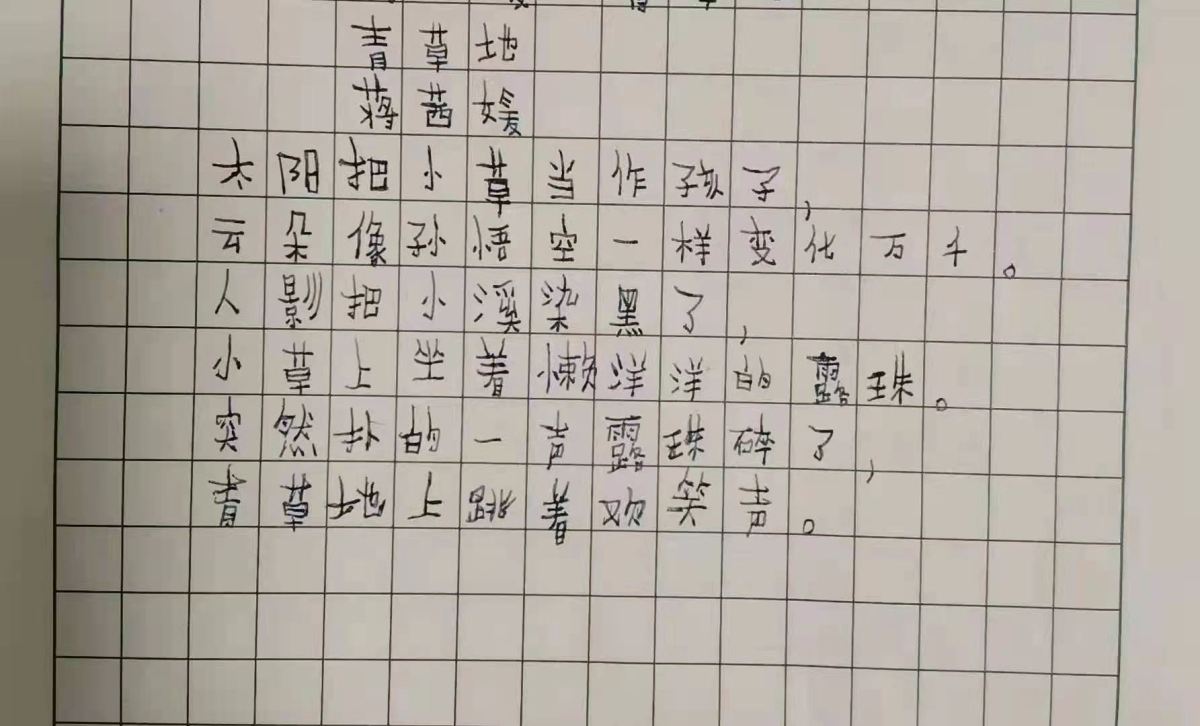 青草地
蒋茜媛
太阳把小草当作孩子，
云朵像孙悟空一样变化万千。
人影把小溪染黑了，
小草上坐着懒洋洋的露珠。
突然扑的一声露珠碎了，
青草地上跳着欢笑声。